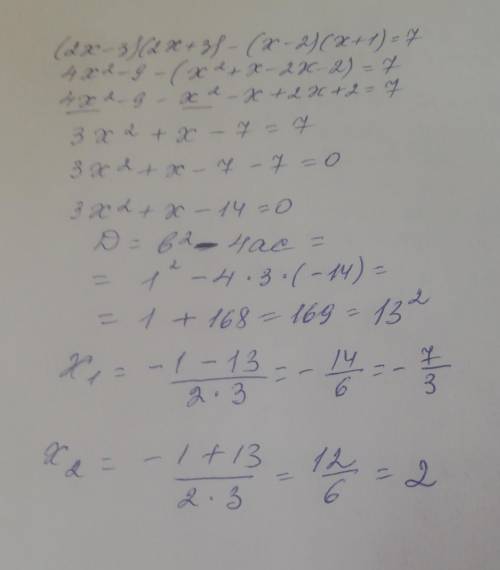 (2x-3)(2x+3)-(x-2)(x+1)=7
4x²-9-(x²+x-2x-2)=7
4x²-9-x²-x+2x+2=7
3x²+x-7=7
3x²+x-7-7=0
3x²+x-14=0
D=b²-4ac=
=1²-4·3·(-14)=
=1+168=169=13²
x₁=(-1-13)/(2·3)=-14/6=-7/3
x₂=(-1+13)/(2·3)=12/6=2